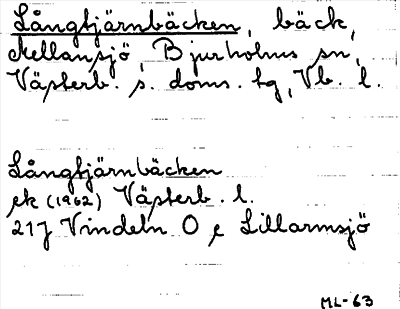 Långtjärnbäcken, bäck,
Mellansjö, Bjurholms sn,
Västerb. s. doms. tg, Vb. l.
Långtjärnbäcken
ek (1962) Västerb. l.
21J Vindeln O e Lillarmsjö
ML-63